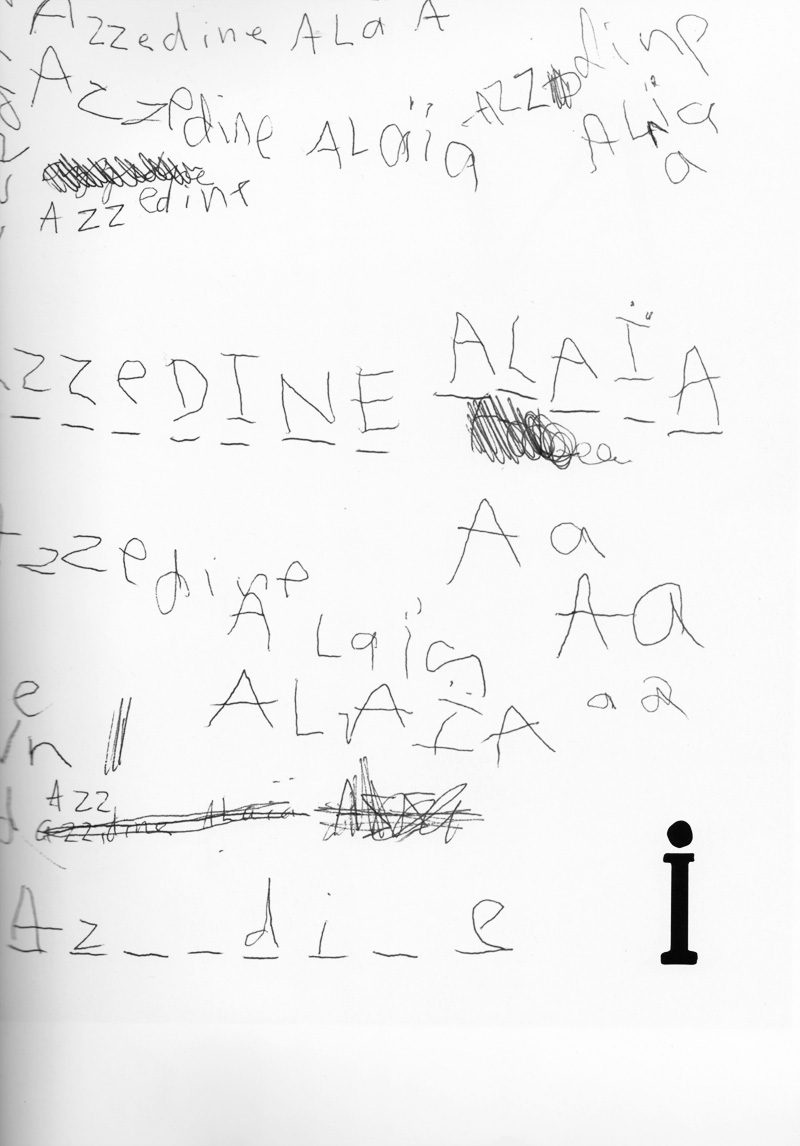 Azzedine ALaA
Azzedine ALaïa
Azz dinp ALïa
a
Azzedine
zzeDINE ALAÏA
zzedine
A a
A Laïa
A a
e
ALAÏA
a a
in
Azz
azzidine ALaïa
Az _ _ d i _ e
i